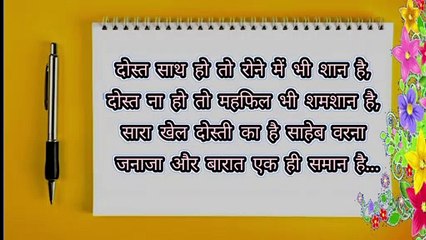 दोस्त साथ हो तो रोने में भी शान है,
दोस्त ना हो तो महफिल भी शमशान है,
सारा खेल दोस्ती का है साहेब वरना
जनाजा और बारात एक ही समान है...